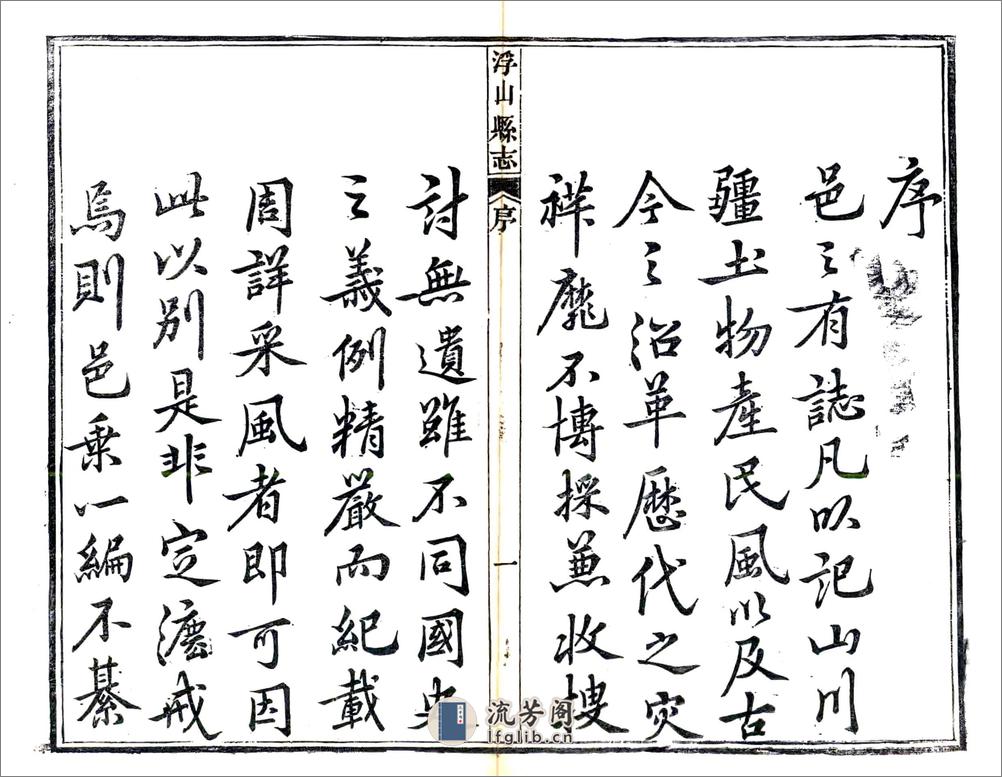 序
邑之有誌凡以記山川
疆土物產民風以及古
今之沿革歷代之灾
祥靡不博採兼收搜
浮山縣志
序
一
討無遺雖不同國史
之義例精嚴而紀載
周詳采風者即可因
此以別是非定灋戒
焉則邑乗一編不綦
流芳阁
lfglib.cn